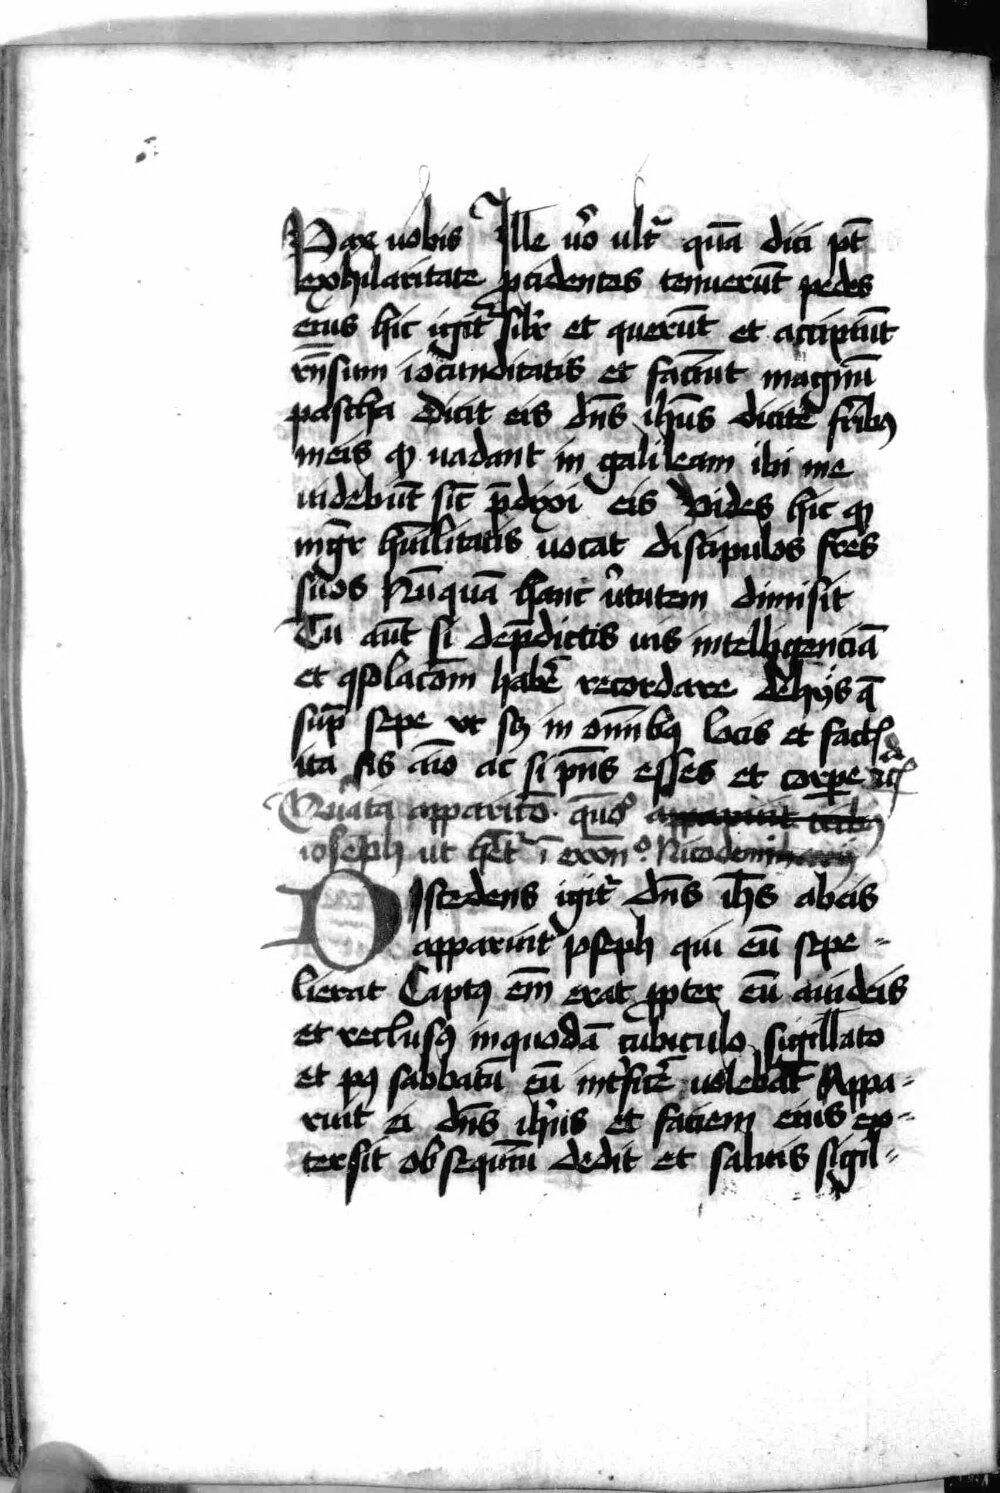 Pax uobis Ille ũo ultͬ quã dici pt̃
exhilaritate ꝓcidentes tenuerũt pedes
eius hic igitͬ silr̃ et querũt et accipiũt
rñsum iocunditatis et faciũt magnũ
pascha Dicit eis dñs ihũs dicite fr̃ibꝫ
meis ꝙ uadant in galileam ibi me
uidebũt sic̃ p̃dixi eis Vides hic ꝙ
mgr̃ hũilitatis uocat discipulos fr̃es
suos Nũquã hanc ũtutem dimisit
Tu aũt si dep̃dictis uis intelligenciã
et ꝯsolacõm habẽ recordare dehijs q̃
sup̃ sepe ut sꝫ in om̃ibꝫ locis et fact̃
ita sis aĩo ac si p̃ns esses et corꝑe
apparitõ quõ apparuit
ioseph ut het̃ ĩ Nicodemi
Discedens igitͬ dñs ih̃s abeis
apparuit ioseph qui eũ sepe-
lierat Captꝰ em̃ erat ꝓpter eũ aiudeis
et reclusꝰ inquodã cubiculo sigillato
et pꝰ sabbatũ eũ int̃ficẽ uolebãt Appa-
ruit ei dñs ihũs et faciem eius ex-
tersit obsequiũ dedit et saluis sigil-